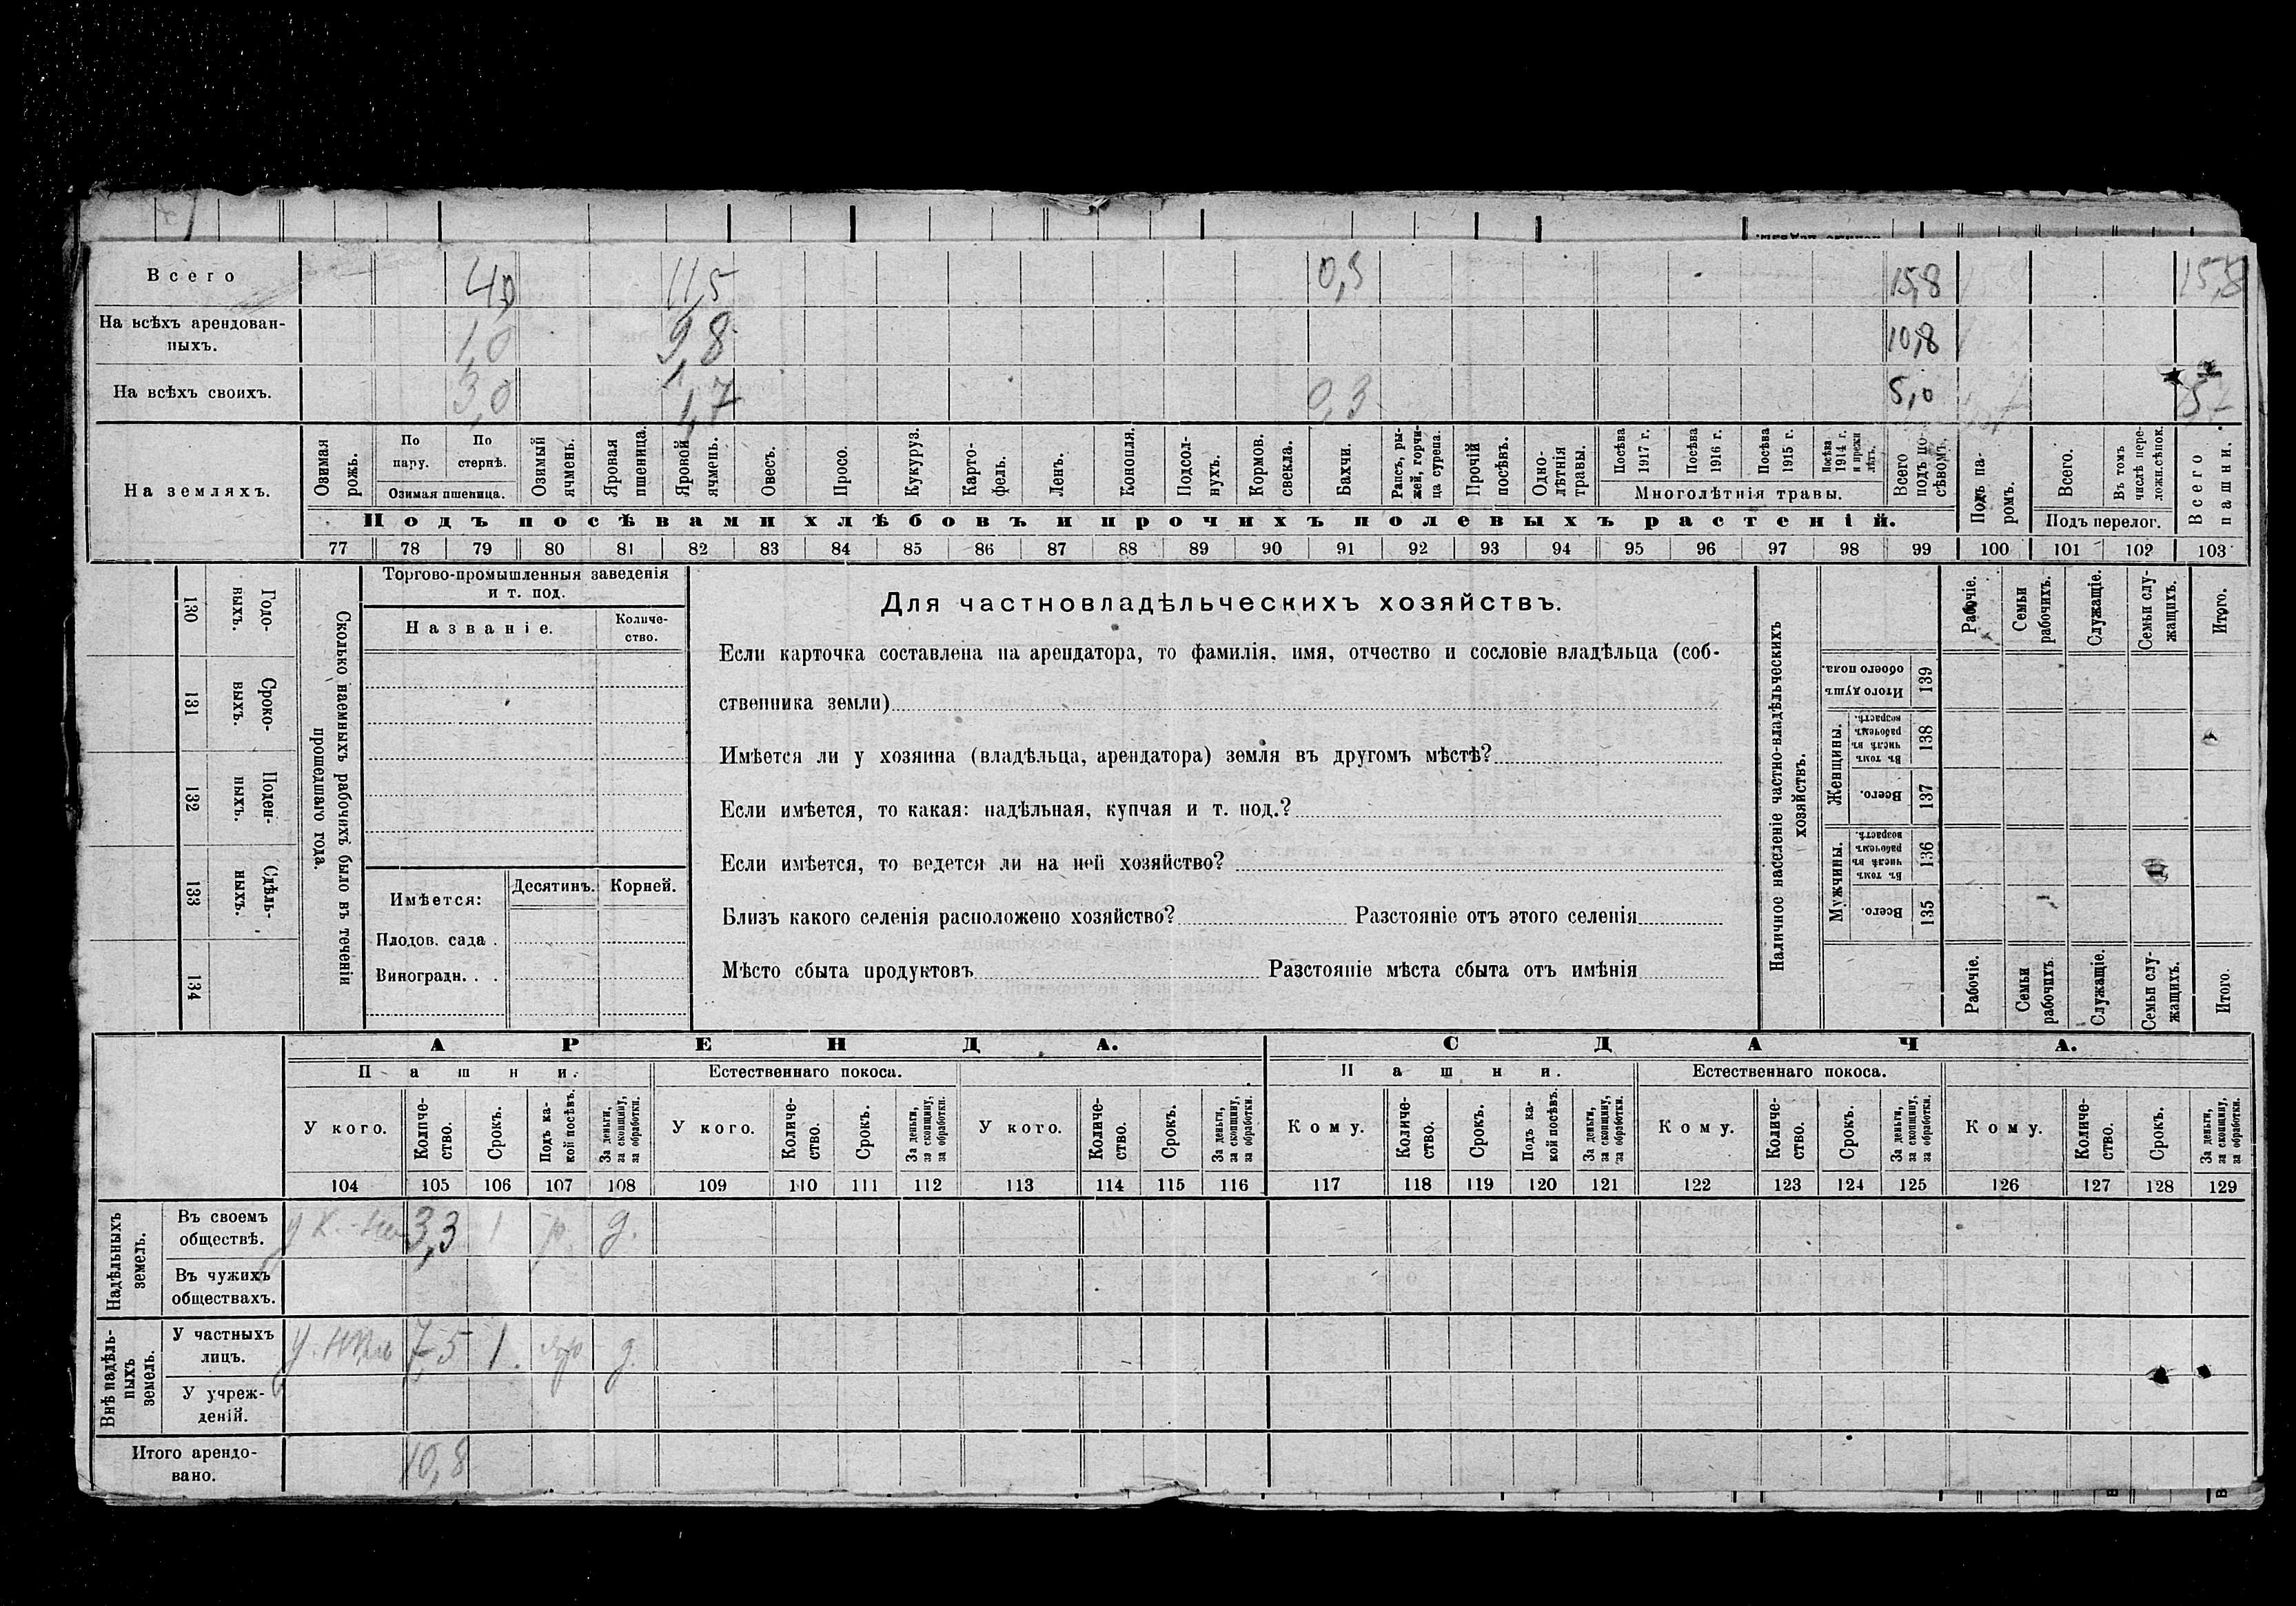 Всего 4,0 11,5 0,3 15,8 15,8
На всѣхъ арендован-
ныхъ. 1,0 9,8 10,8
На всѣхъ своихъ. 3,0 1,7 0,3 5,0
На земляхъ.
Озимая рожь.
По пару.
По стернѣ.
Озимая пшеница.
Озимый ячмень.
Яровая пшеница.
Яровой ячмень.
Овесъ.
Просо.
Кукуруз.
Карто-
фель.
Ленъ.
Конопля.
Подсол-
нухъ.
Кормов. свекла.
Бахчи.
Рапсъ, ры-
жей, горчи-
ца сурепа.
Прочій посѣвъ.
Одно-
лѣтнія травы.
Посѣва 1917 г.
Посѣва 1916 г.
Посѣва 1915 г.
Посѣва 1914 г. и прежн лѣтъ.
Многолѣтнія травы.
Всего подъ по-
сѣвомъ.
Подъ па-
ромъ.
Всего.
Въ томъ числѣ пере-
ложн.сѣнок.
Подъ перелог.
Всего пашни.
Подъ посѣвами хлѣбовъ и прочихъ полевыхъ растеній.
77 78 79 80 81 82 83 84 85 86 87 88 89 90 91 92 93 94 95 96 97 98 99 100 101 102 103
130 Годо-
выхъ.
131 Сроко-
выхъ.
132 Поден-
ныхъ.
133 Сдѣль-
ныхъ.
134
Сколько наемныхъ рабочихъ было въ теченіи
прошедшаго года.
Торгово-промышленныя заведенія
и т. под.
Названіе.
Количе-
ство.
Имѣется:
Десятинъ.
Корней.
Плодов. сада .
Виноградн. . .
Для частновладѣльческихъ хозяйствъ.
Если карточка составлена на арендатора, то фамилія, имя, отчество и сословіе владѣльца (соб-
ственника земли)
Имѣется ли у хозяина (владѣльца, арендатора) земля въ другомъ мѣстѣ?
Если имѣется, то какая: надѣльная, купчая и т. под.?
Если имѣется, то ведется ли на ней хозяйство?
Близъ какого селенія расположено хозяйство? Разстояніе отъ этого селенія
Мѣсто сбыта продуктовъ Разстояніе мѣста сбыта отъ имѣнія
Наличное населеніе частно-владѣльческихъ
хозяйствъ.
Рабочіе.
Семьи рабочихъ.
Служащіе.
Семьи слу-
жащихъ.
Итого.
Итого душъ обоего пола. 139
Женщины.
Въ томъ числѣ въ рабочемъ возрастѣ. 138
Всего. 137
Мужчины.
Въ томъ числѣ въ рабочемъ возрастѣ. 136
Всего. 135
Рабочіе.
Семьи рабочихъ.
Служащіе.
Семьи слу-
жащихъ.
Итого.
АРЕНДА.
СДАЧА.
Пашни.
Естественнаго покоса.
Пашни.
Естественнаго покоса.
У кого.
Количе-
ство.
Срокъ.
Подъ ка-
кой посѣвъ.
За деньги, за скопщину, за обработки.
У кого.
Количе-
ство.
Срокъ.
За деньги, за скопщину, за обработки.
У кого.
Количе-
ство.
Срокъ.
За деньги, за скопщину, за обработки.
Кому.
Количе-
ство.
Срокъ.
Подъ ка-
кой посѣвъ.
За деньги, за скопщину, за обработки.
Кому.
Количе-
ство.
Срокъ.
За деньги, за скопщину, за обработки.
Кому.
Количе-
ство.
Срокъ.
За деньги, за скопщину, за обработки.
104 105 106 107 108 109 110 111 112 113 114 115 116 117 118 119 120 121 122 123 124 125 126 127 128 129
Надѣльныхъ
земель.
Въ своемъ
обществѣ. 3,3 1 д.
Въ чужихъ
обществахъ.
Внѣ надѣль-
ныхъ
земель.
У частныхъ
лицъ. 7,5 1. д.
У учреж-
деній.
Итого арендо-
вано. 10,8